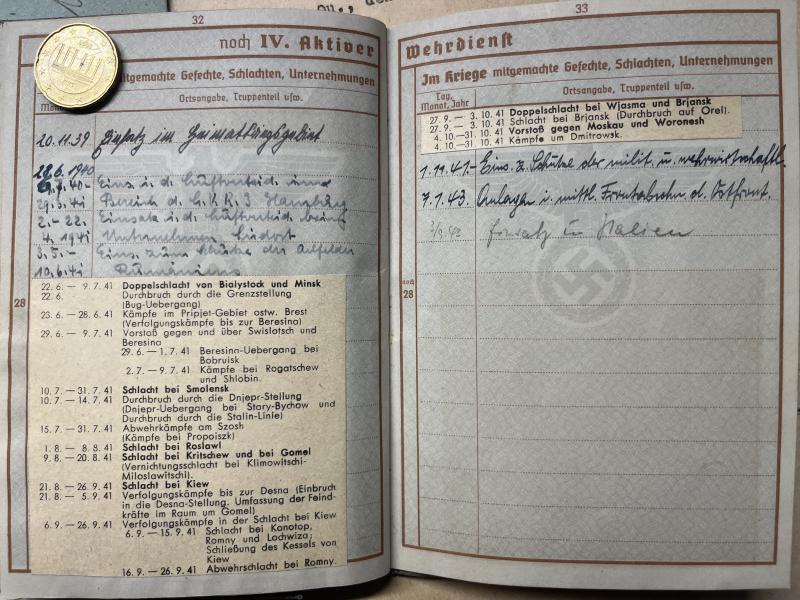 32
noch IV. Aktiver
mitgemachte Gefechte, Schlachten, Unternehmungen
Ortsangabe, Truppenteil usw.
20.11.39 Einsatz im Heimatkriegsgebiet
1940
Eins. i. d. Luftverteid. im
29.3.41 Bereich d. Hamburg
2.- 22. Einsatz i. d. Luftverteid. beim
4. 1941 Unternehmen Südost
3.5.- Eins. zum Schutze der Ölfelder
10.6.41 Rumäniens
28
22. 6. — 9. 7. 41 Doppelschlacht von Bialystock und Minsk
22. 6. Durchbruch durch die Grenzstellung
(Bug-Uebergang)
23. 6. — 28. 6. 41 Kämpfe im Pripjet-Gebiet ostw. Brest
(Verfolgungskämpfe bis zur Beresina)
29. 6. — 9. 7. 41 Vorstoß gegen und über Swislotsch und
Beresina
29. 6. — 1. 7. 41 Beresina-Uebergang bei
Bobruisk
2. 7. — 9. 7. 41 Kämpfe bei Rogatschew
und Shlobin.
10. 7. — 31. 7. 41 Schlacht bei Smolensk
10. 7. — 14. 7. 41 Durchbruch durch die Dnjepr-Stellung
(Dnjepr-Uebergang bei Stary-Bychow und
Durchbruch durch die Stalin-Linie)
15. 7. — 31. 7. 41 Abwehrkämpfe am Szosh
(Kämpfe bei Propoiszk)
1. 8. — 8. 8. 41 Schlacht bei Roslawl
9. 8. — 20. 8. 41 Schlacht bei Kritschew und bei Gomel
(Vernichtungsschlacht bei Klimowitschi-
Miloslawitschi).
21. 8. — 26. 9. 41 Schlacht bei Kiew
21. 8. — 5. 9. 41 Verfolgungskämpfe bis zur Desna (Einbruch
in die Desna-Stellung. Umfassung der Feind-
kräfte im Raum um Gomel)
6. 9. — 26. 9. 41 Verfolgungskämpfe in der Schlacht bei Kiew
6. 9. — 15. 9. 41 Schlacht bei Konotop,
Romny und Lochwiza;
Schließung des Kessels von
Kiew
16. 9. — 26. 9. 41 Abwehrschlacht bei Romny.
33
Wehrdienst
Im Kriege mitgemachte Gefechte, Schlachten, Unternehmungen
Tag, Monat, Jahr Ortsangabe, Truppenteil usw.
27. 9. — 3. 10. 41 Doppelschlacht bei Wjasma und Brjansk
27. 9. — 3. 10. 41 Schlacht bei Brjansk (Durchbruch auf Orel).
4. 10. — 31. 10. 41 Vorstoß gegen Moskau und Woronesh
4. 10. — 31. 10. 41 Kämpfe um Dmitrowsk.
1.11.41- Eins. z. Schutze der milit. u. wehrwirtschaftl.
7.1.43. Anlagen i. mittl. Frontabschn. d. Ostfront.
Einsatz in Italien
noch
28